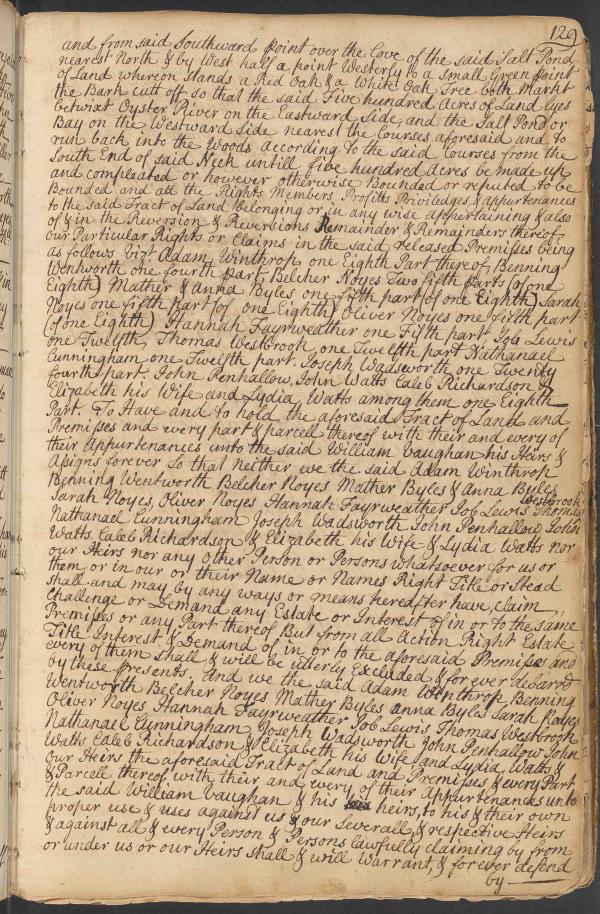 129
and from said Southward point over the Cove of the said Salt Pond
nearest North & by West half a point Westerly to a small Green point
of Land whereon stands a Red Oak & a White Oak Tree both Markt
the Bark cutt off so that the said Five hundred Acres of Land lyes
betwixt Oyster River on the Eastward Side and the Salt Pond or
Bay on the Westward Side nearest the Courses aforesaid and to
run back into the Woods according to the said Courses from the
South End of said Neck untill five hundred Acres be made up
and compleated or however otherwise Bounded or reputed to be
Bounded and all the Rights Members Profits Priviledges & appurtenances
to the said Tract of Land belonging or in any wise appertaining & also
of & in the Reversion & Reversions Remainder & Remainders thereof
our Particular Rights or Claims in the said released Premisses being
as follows vizt. Adam Winthrop one Eighth Part thereof, Benning
Wentworth one fourth part Belcher Noyes Two fifth parts (of one
Eighth) Mather & Anna Byles one fifth part (of one Eighth) Sarah
Noyes one fifth part (of one Eighth) Oliver Noyes one fifth part
(of one Eighth) Hannah Fayrweather one Fifth part Job Lewis
one Twelfth, Thomas Westbrook one Twelfth part Nathanael
Cunningham one Twelfth part. Joseph Wadsworth one Twenty
fourth part. John Penhallow, John Watts Caleb Richardson &
Elizabeth his Wife and Lydia Watts among them one Eighth
Part. To Have and to hold the aforesaid Tract of Land and
Premisses and every part & parcell thereof with their and every of
their Appurtenances unto the said William Vaughan his Heirs &
Assigns forever So that Neither we the said Adam Winthrop
Benning Wentworth Belcher Noyes Mather Byles & Anna Byles
Sarah Noyes, Oliver Noyes Hannah Fayrweather Job Lewis Thomas Westbrook
Nathanael Cunningham Joseph Wadsworth John Penhallow John
Watts Caleb Richardson & Elizabeth his Wife & Lydia Watts nor
our Heirs nor any other Person or Persons whatsoever for us or
them or in our or their Name or Names Right Title or Stead
shall and may by any ways or means hereafter have, claim
Challenge or Demand any Estate or Interest of in or to the same
Premisses or any Part thereof But from all Action Right Estate
Title Interest & Demand of in or to the aforesaid Premisses and
every of them shall & will be utterly Excluded & for ever debarred
by these presents. And we the said Adam Winthrop Benning
Wentworth Belcher Noyes Mather Byles Anna Byles Sarah Noyes
Oliver Noyes Hannah Fayrweather Job Lewis Thomas Westbrook
Nathanael Cunningham Joseph Wadsworth John Penhallow John
Watts Caleb Richardson & Elizabeth his Wife and Lydia Watts &
our Heirs the aforesaid Tract of Land and Premisses & every Part
& Parcell thereof with their and every of their Appurtenances unto
the said William Vaughan & his heirs, to his & their own
proper use & uses against us & our Severall & respective Heirs
& against all & every Person & Persons lawfully claiming by from
or under us or our Heirs shall & will Warrant, & forever defend
by